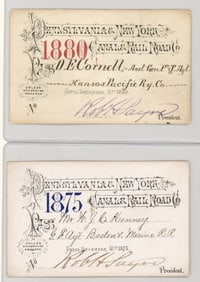 PENNSYLVANIA & NEW YORK
1880 CANAL & RAIL ROAD Co
Pass
D E Cornell, Asst Gen. P. & T. Agt.
Kansas Pacific Ry. Co.
UNTIL December, 31st 1880.
UNLESS OTHERWISE ORDERED
No
Robt H Sayre
President.
PENNSYLVANIA & NEW YORK
1875 CANAL & RAIL ROAD Co
Pass
Mr
Kenney
Boston & Maine R.R.
UNTIL December, 31st 1875.
UNLESS OTHERWISE ORDERED
No
Robt H Sayre
President.